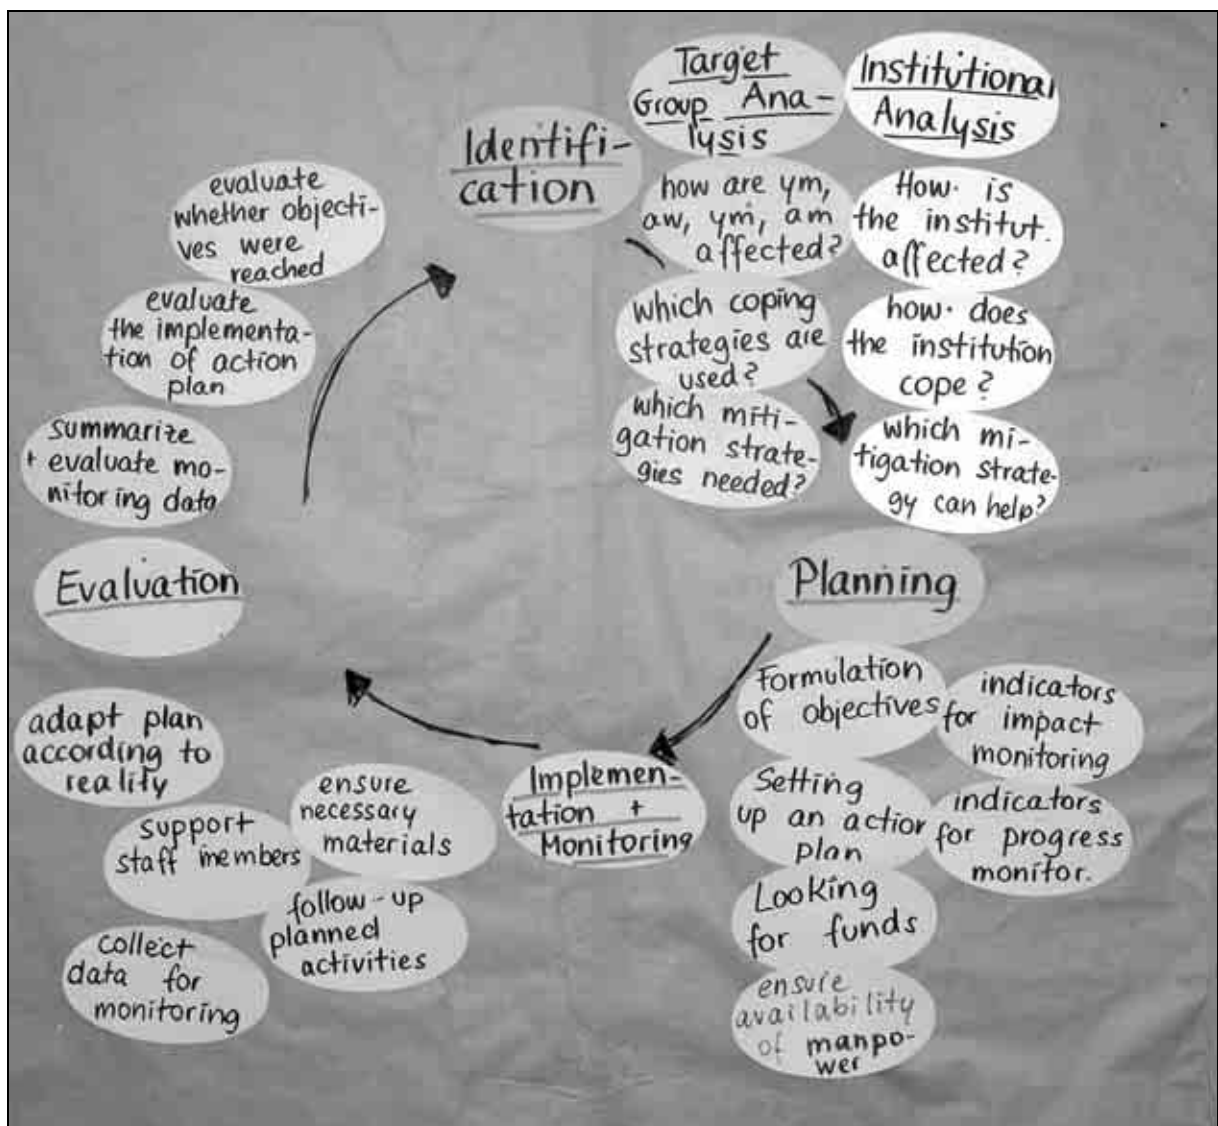 Identifi-
cation
Target
Group Ana-
lysis
how are ym,
aw, ym, am
affected?
which coping
strategies are
used?
which miti-
gation strate-
gies needed?
Institutional
Analysis
How is
the institut.
affected?
how does
the institution
cope?
which mi-
tigation strate-
gy can help?
Planning
Formulation
of objectives
indicators
for impact
monitoring
Setting
up an action
plan
indicators
for progress
monitor.
Looking
for funds
ensure
availability
of manpo-
wer
Implemen-
tation +
Monitoring
ensure
necessary
materials
support
staff members
follow-up
planned
activities
collect
data for
monitoring
adapt plan
according to
reality
Evaluation
summarize
+ evaluate mo-
nitoring data
evaluate
the implementa-
tion of action
plan
evaluate
whether objecti-
ves were
reached